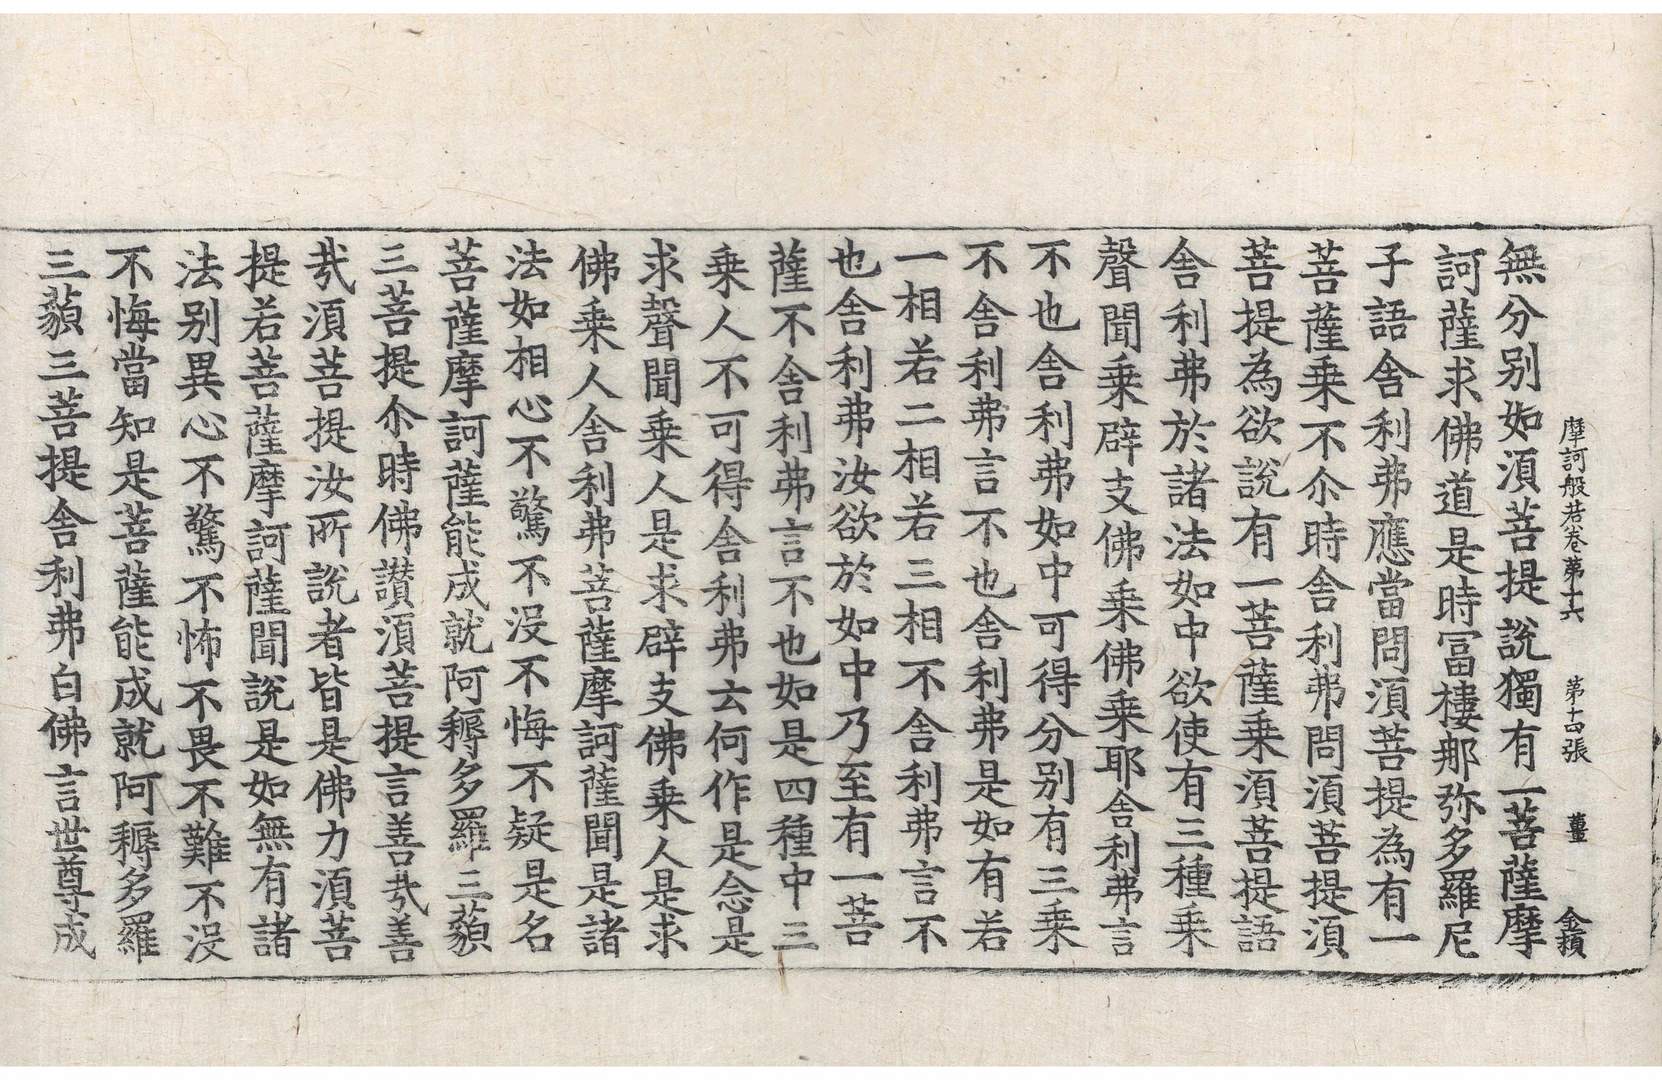 摩訶般若卷第十六　第十四張　薑　金預
無分別如湏菩提說獨有一菩薩摩
訶薩求佛道是時冨樓那弥多羅尼
子語舍利弗應當問湏菩提為有一
菩薩乗不尒時舍利弗問湏菩提湏
菩提為欲說有一菩薩乗湏菩提語
舍利弗於諸法如中欲使有三種乗
聲聞乗辟支佛乗佛乗耶舍利弗言
不也舍利弗如中可得分別有三乗
不舍利弗言不也舍利弗是如有若
一相若二相若三相不舍利弗言不
也舍利弗汝欲於如中乃至有一菩
薩不舍利弗言不也如是四種中三
乗人不可得舍利弗云何作是念是
求聲聞乗人是求辟支佛乗人是求
佛乗人舍利弗菩薩摩訶薩聞是諸
法如相心不驚不没不悔不疑是名
菩薩摩訶薩能成就阿耨多羅三藐
三菩提尒時佛讃湏菩提言善㢤善
㢤湏菩提汝所說者皆是佛力湏菩
提若菩薩摩訶薩聞說是如無有諸
法別異心不驚不怖不畏不難不没
不悔當知是菩薩能成就阿耨多羅
三藐三菩提舍利弗白佛言世尊成